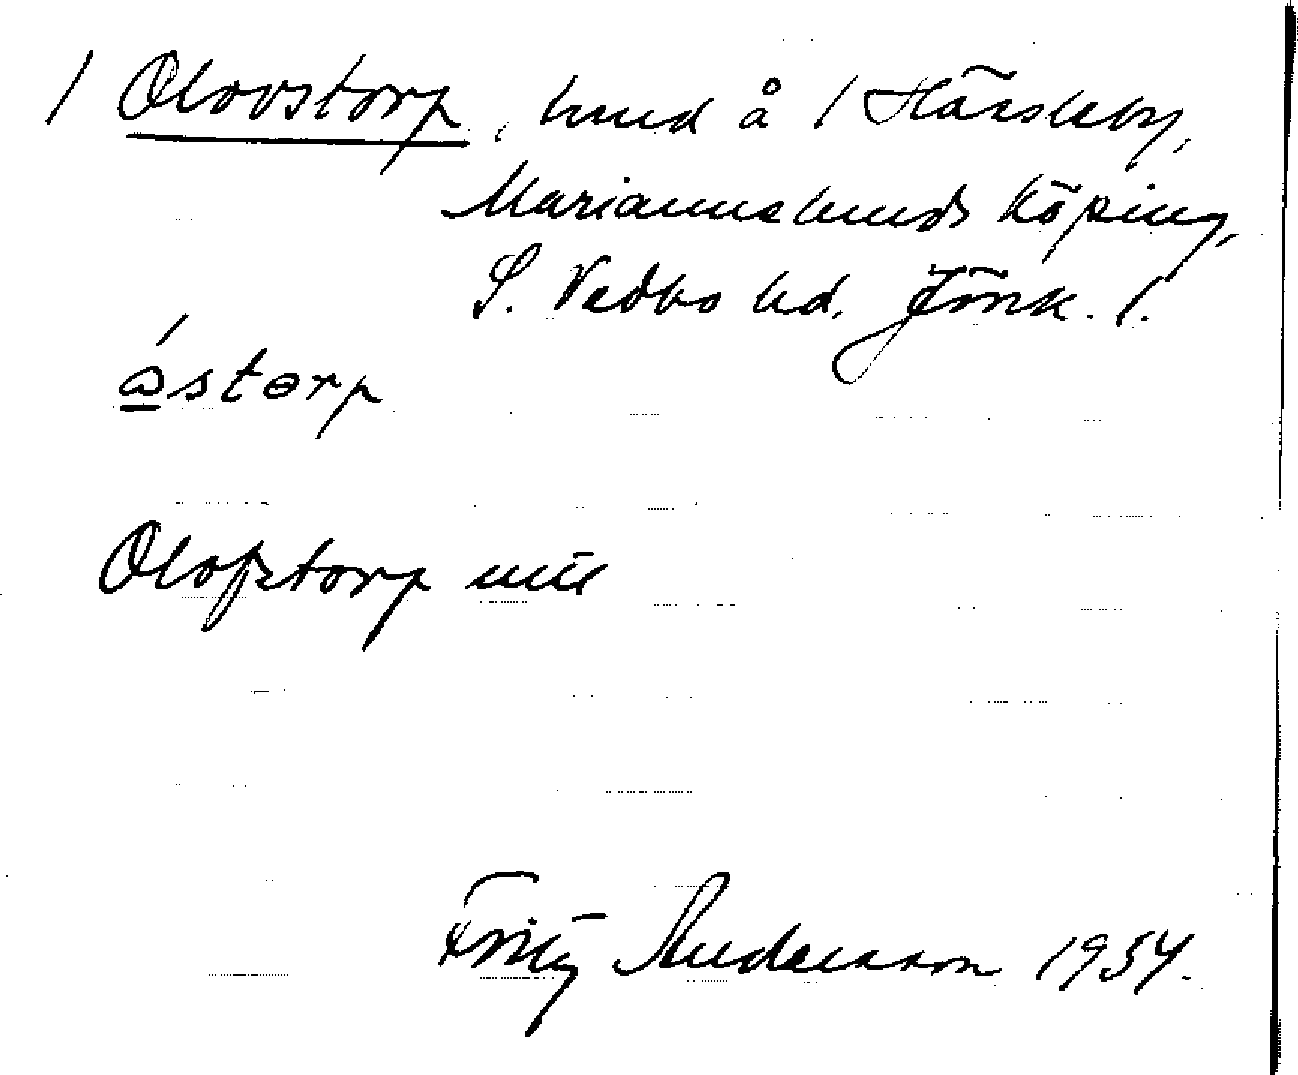 / Olovstorp, hmd å / Hässleby,
Mariannelunds köping,
S. Vedbo hd. Jönk. l.
åstorp
Olofstorp
Fritz Andersson 1954.